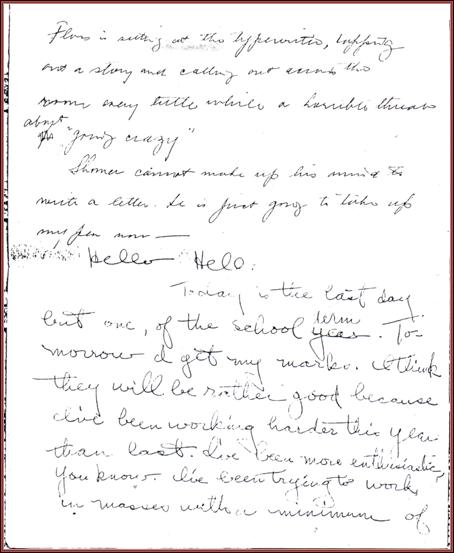 Flora is sitting at the typewriter, tapping
out a story and calling out across the
room every little while a horrible threat
about "going crazy"
Shomer cannot make up his mind to
write a letter. He is just going to take up
my pen now —
Hello Helo:
Today is the last day
but one, of the school year term. To-
morrow I get my marks. I think
they will be rather good because
I've been working harder this year
than last. I've been more enthusiastic,
you know. I've been trying to work
in masses with a minimum of